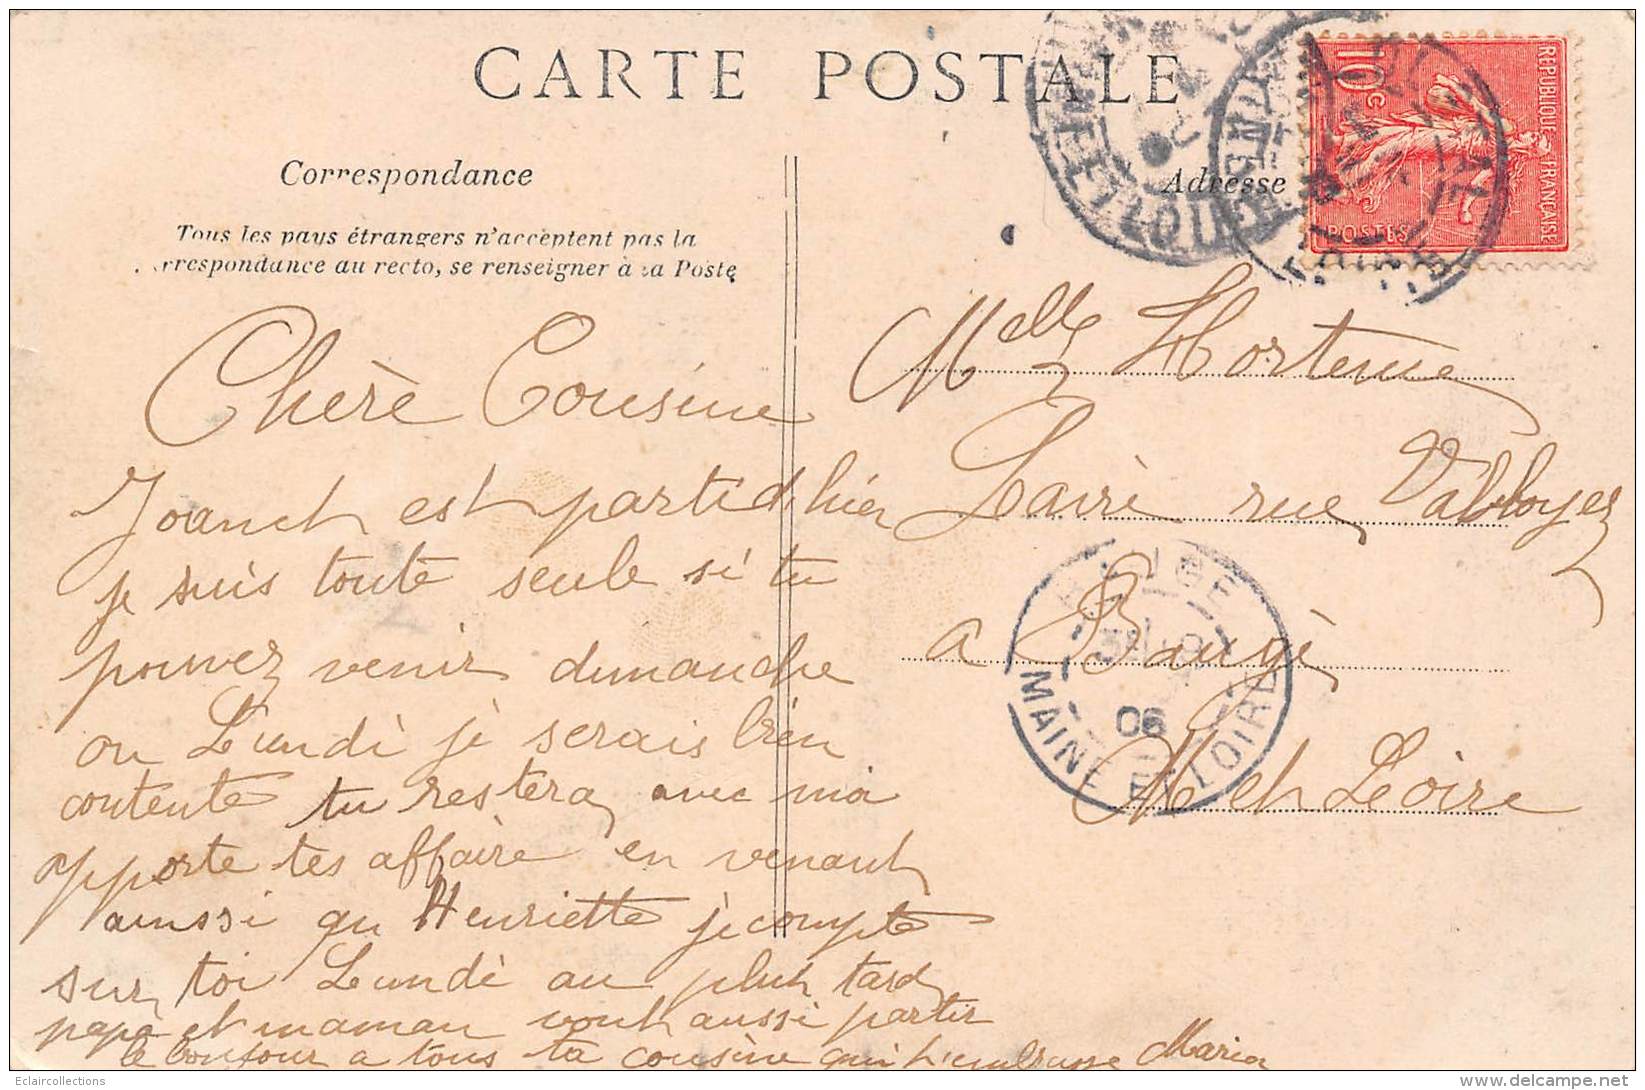 CARTE POSTALE
Correspondance
Tous les pays étrangers n'acceptent pas la
rrespondance au recto, se renseigner à la Poste
Adresse
REPUBLIQUE FRANÇAISE
10c
POSTES
Chère Cousine
est partid hier
je suis toute seule si tu
pouvez venir dimanche
ou Lundi je serais bien
contente tu restera avec moi
apporte tes affaire en venant
ainssi qu Henriette je compte
sur toi Lundi au plus tard
papa et maman vont aussi partir
le bonjour a tous ta cousine qui t'embrasse Maria
Melle Hortense
Lairé rue Valboyer
a Baugé
M et Loire
BAUGE
06
MAINE ET LOIRE
Eclaircollections
www.delcampe.net